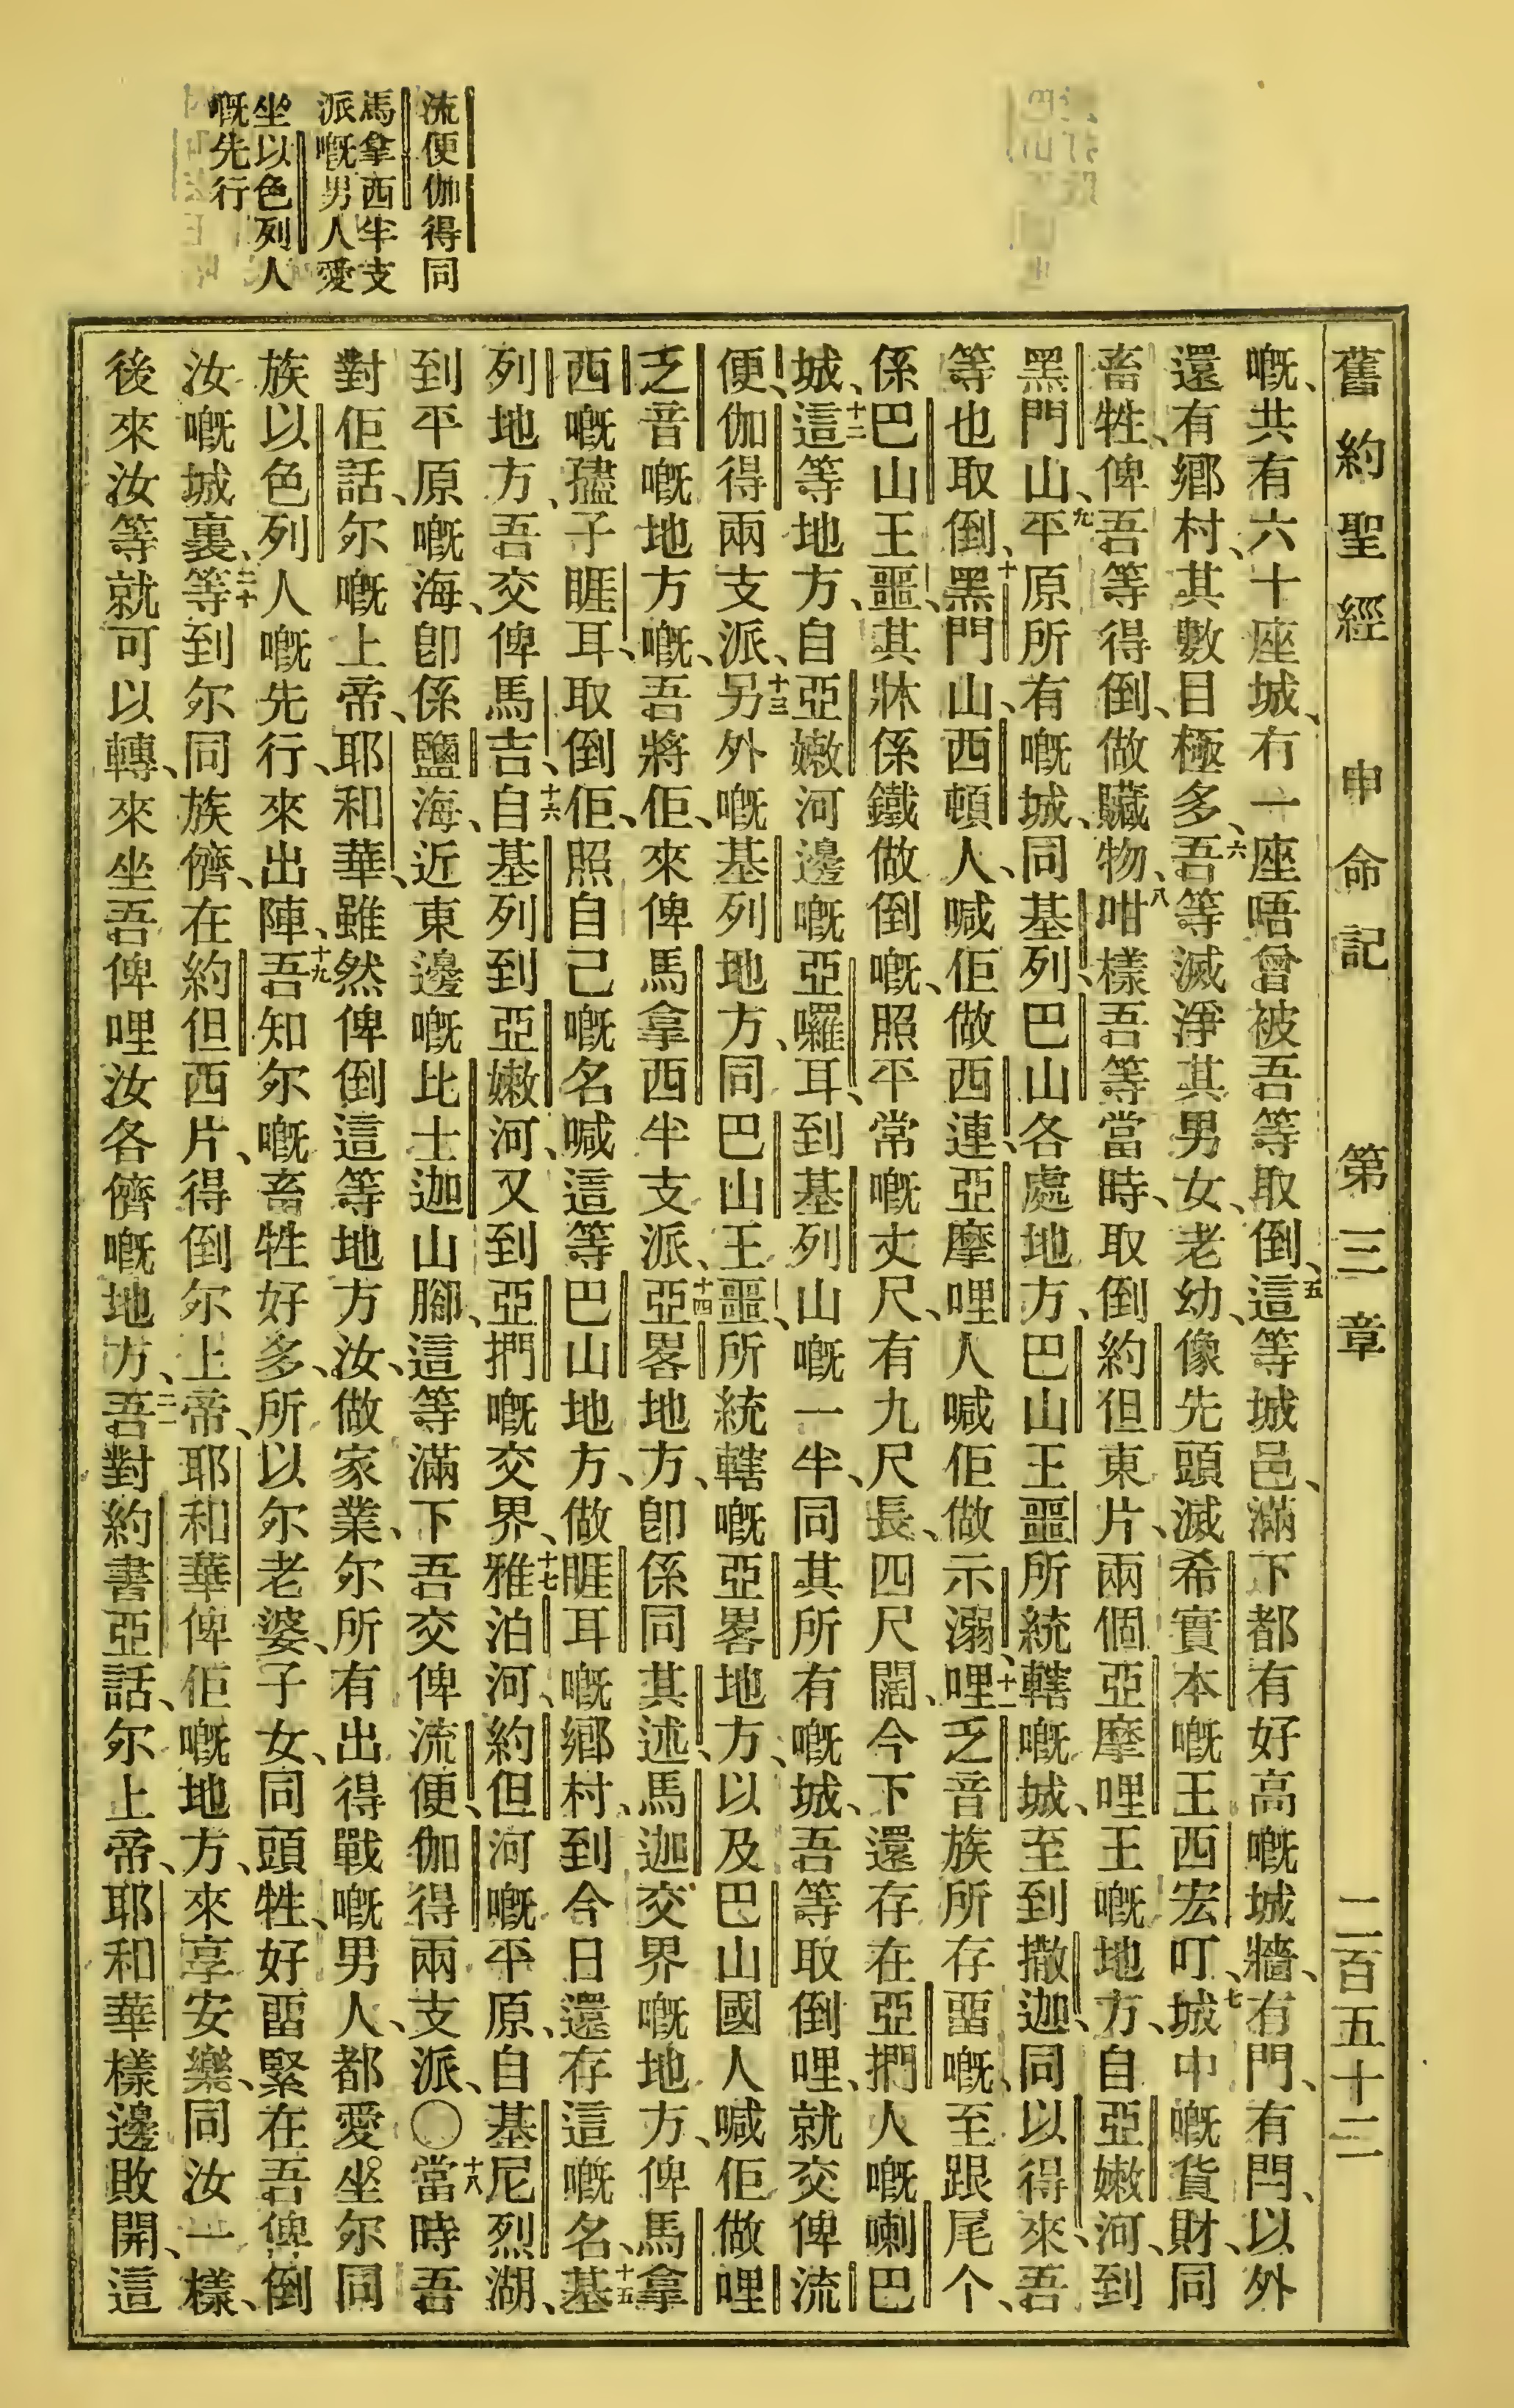 舊約聖經 申命記 第三章 二百五十二
嘅、共有六十座城、冇一座唔曾被吾等取倒、五這等城邑、滿下都有好高嘅城牆、有門、有閂、以外
還有鄉村、其數目極多、六吾等滅淨其男女、老幼、像先頭滅希實本嘅王西宏叮、七城中嘅貨財、同
畜牲、俾吾等得倒、做贜物、八咁樣吾等當時、取倒約但東片、兩個亞摩哩王嘅地方、自亞嫩河、到
黑門山、九平原所有嘅城、同基列、巴山各處地方、巴山王噩所統轄嘅城、至到撒迦、同以得來、吾
等也取倒、十黑門山、西頓人、喊佢做西連、亞摩哩人喊佢做示溺、十一哩乏音族所存畱嘅、至跟尾个、
係巴山王噩、其牀係鐵做倒嘅、照平常嘅丈尺、有九尺長、四尺闊、今下還存在亞捫人嘅喇巴
城、十二這等地方、自亞嫩河邊嘅亞囉耳、到基列山嘅一半、同其所有嘅城、吾等取倒哩、就交俾流
便、伽得兩支派、十三另外嘅基列地方、同巴山王噩、所統轄嘅亞畧地方、以及巴山國人喊佢做哩
乏音嘅地方嘅、吾將佢、來俾馬拿西半支派、十四亞畧地方、卽係同其述、馬迦交界嘅地方、俾馬拿
西嘅孻子睚耳、取倒佢、照自己嘅名喊這等巴山地方、做睚耳嘅鄉村、到今日還存這嘅名、十五基
列地方、吾交俾馬吉、十六自基列到亞嫩河、又到亞捫嘅交界、十七雅泊河、約但河嘅平原、自基尼烈湖、
到平原嘅海、卽係鹽海、近東邊嘅比士迦山腳、這等滿下吾交俾流便、伽得兩支派、〇十八當時吾
對佢話、尔嘅上帝、耶和華、雖然俾倒這等地方汝、做家業、尔所有出得戰嘅男人、都愛坐尔同
族以色列人嘅先行、來出陣、十九吾知尔嘅畜牲好多、所以尔老婆、子女、同頭牲、好畱緊在吾俾倒
汝嘅城裏、二十等到尔同族儕、在約但西片、得倒尔上帝、耶和華俾佢嘅地方、來享安樂、同汝一樣、
後來汝等就可以轉、來坐吾俾哩汝各儕嘅地方、二一吾對約書亞話、尔上帝、耶和華樣邊敗開、這
流便伽得同
馬拿西半支
派嘅男人愛
坐以色列人
嘅先行